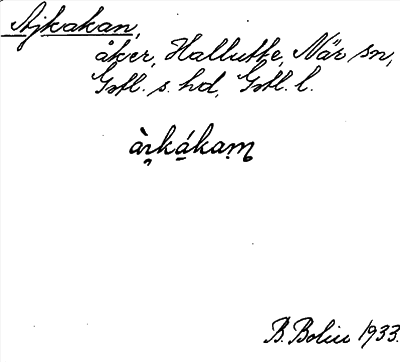 Ajkakan,
åker, Hallutte, När sn,
Gotl. s. hd, Gotl. l.
B. Bolin 1933.